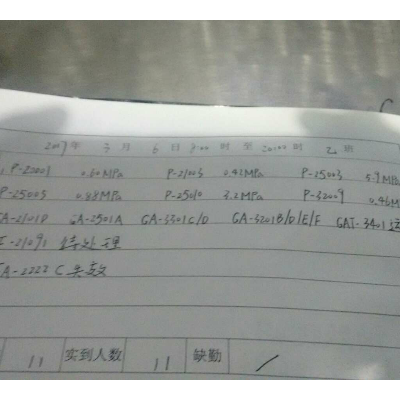 2007年 7月 6日 8:00 时 至 20:00 时 乙班
P-22003 0.60MPa P-21003 0.41MPa P-25003 5.9MPa
P-25005 0.88MPa P-25010 3.2MPa P-32009 0.46M
GA-2101D GA-2501A GA-3301C/D GA-3201B/D/E/F GAT-3401运
-21091 待处理
GA-2222C失效
11 实到人数 11 缺勤 /